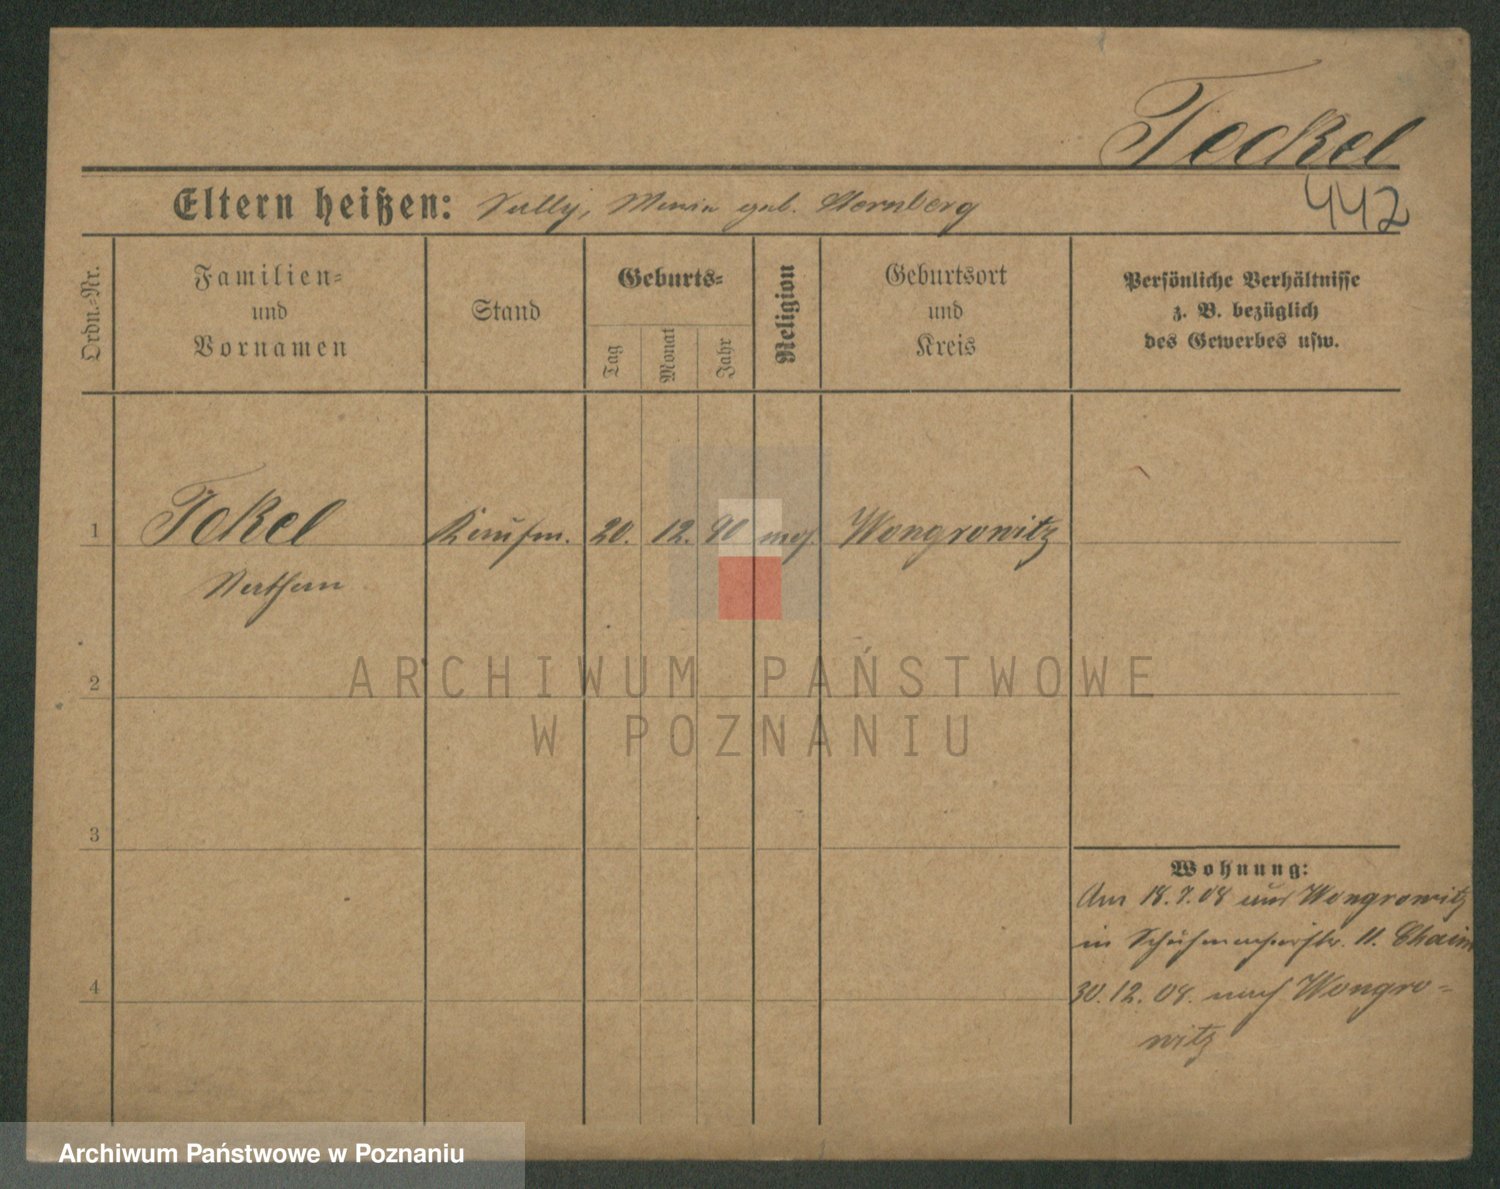 Teckel
442
Eltern heißen: Sally, Maria geb. Sternberg
Ordn.-Nr.
Familien-
und
Vornamen
Stand
Geburts-
Tag
Monat
Jahr
Religion
Geburtsort
und
Kreis
Persönliche Verhältnisse
z. B. bezüglich
des Gewerbes usw.
1 Tekel Kaufm. 20. 12. 90 mos. Wongrowitz
Nathan
2
ARCHIWUM PAŃSTWOWE
W POZNANIU
3
Wohnung:
Am 18.7.08 aus Wongrowitz
in Schuhmacherstr. 11. Chaim
4
30.12.08. nach Wongro-
witz
Archiwum Państwowe w Poznaniu